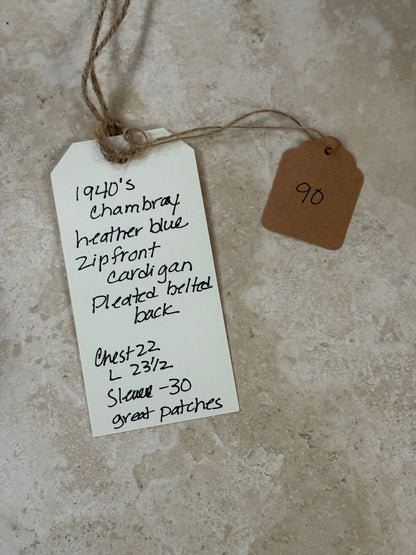 1940's
chambray
heather blue
zipfront
cardigan
Pleated belted
back
Chest 22
L 23 1/2
Sleeve -30
great patches
90